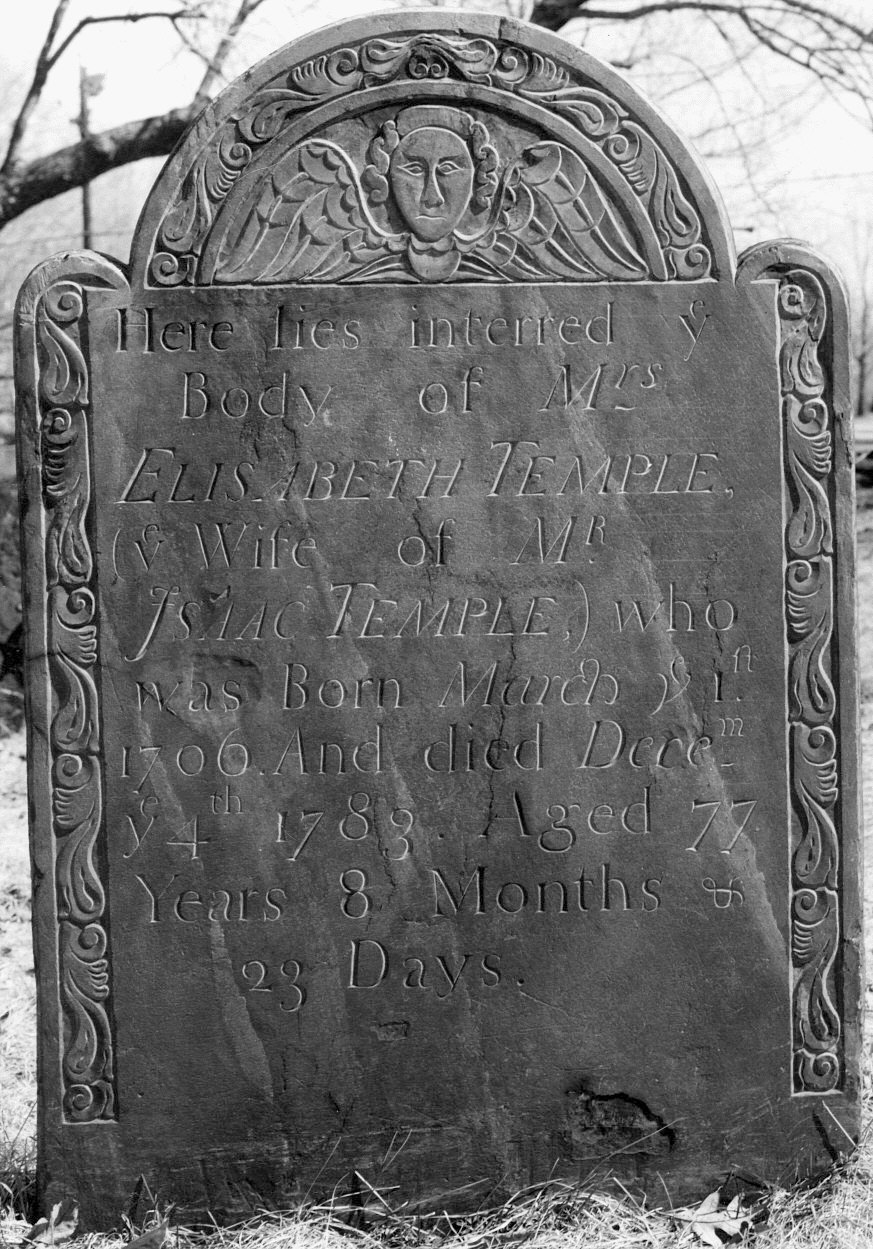 Here lies interred yͤ
Body of Mrs
ELISABETH TEMPLE,
(yͤ Wife of MR.
ISAAC TEMPLE,) who
was Born March yͤ 1.st
1706. And died Decem
yͤ 4th 1783. Aged 77
Years 8 Months &
23 Days.